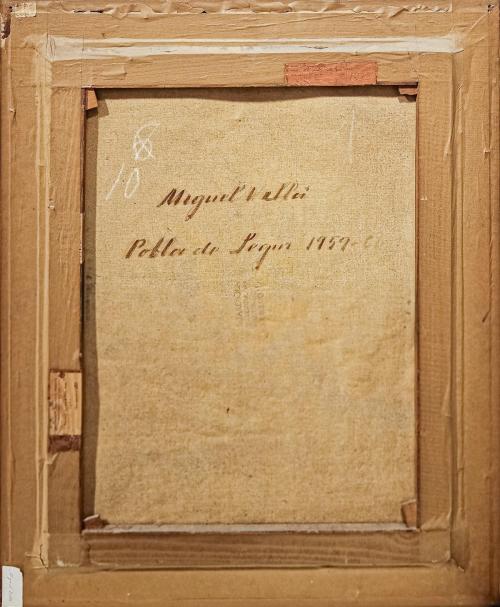 10
Miguel Vallè
Pobla de Segur 1959-6